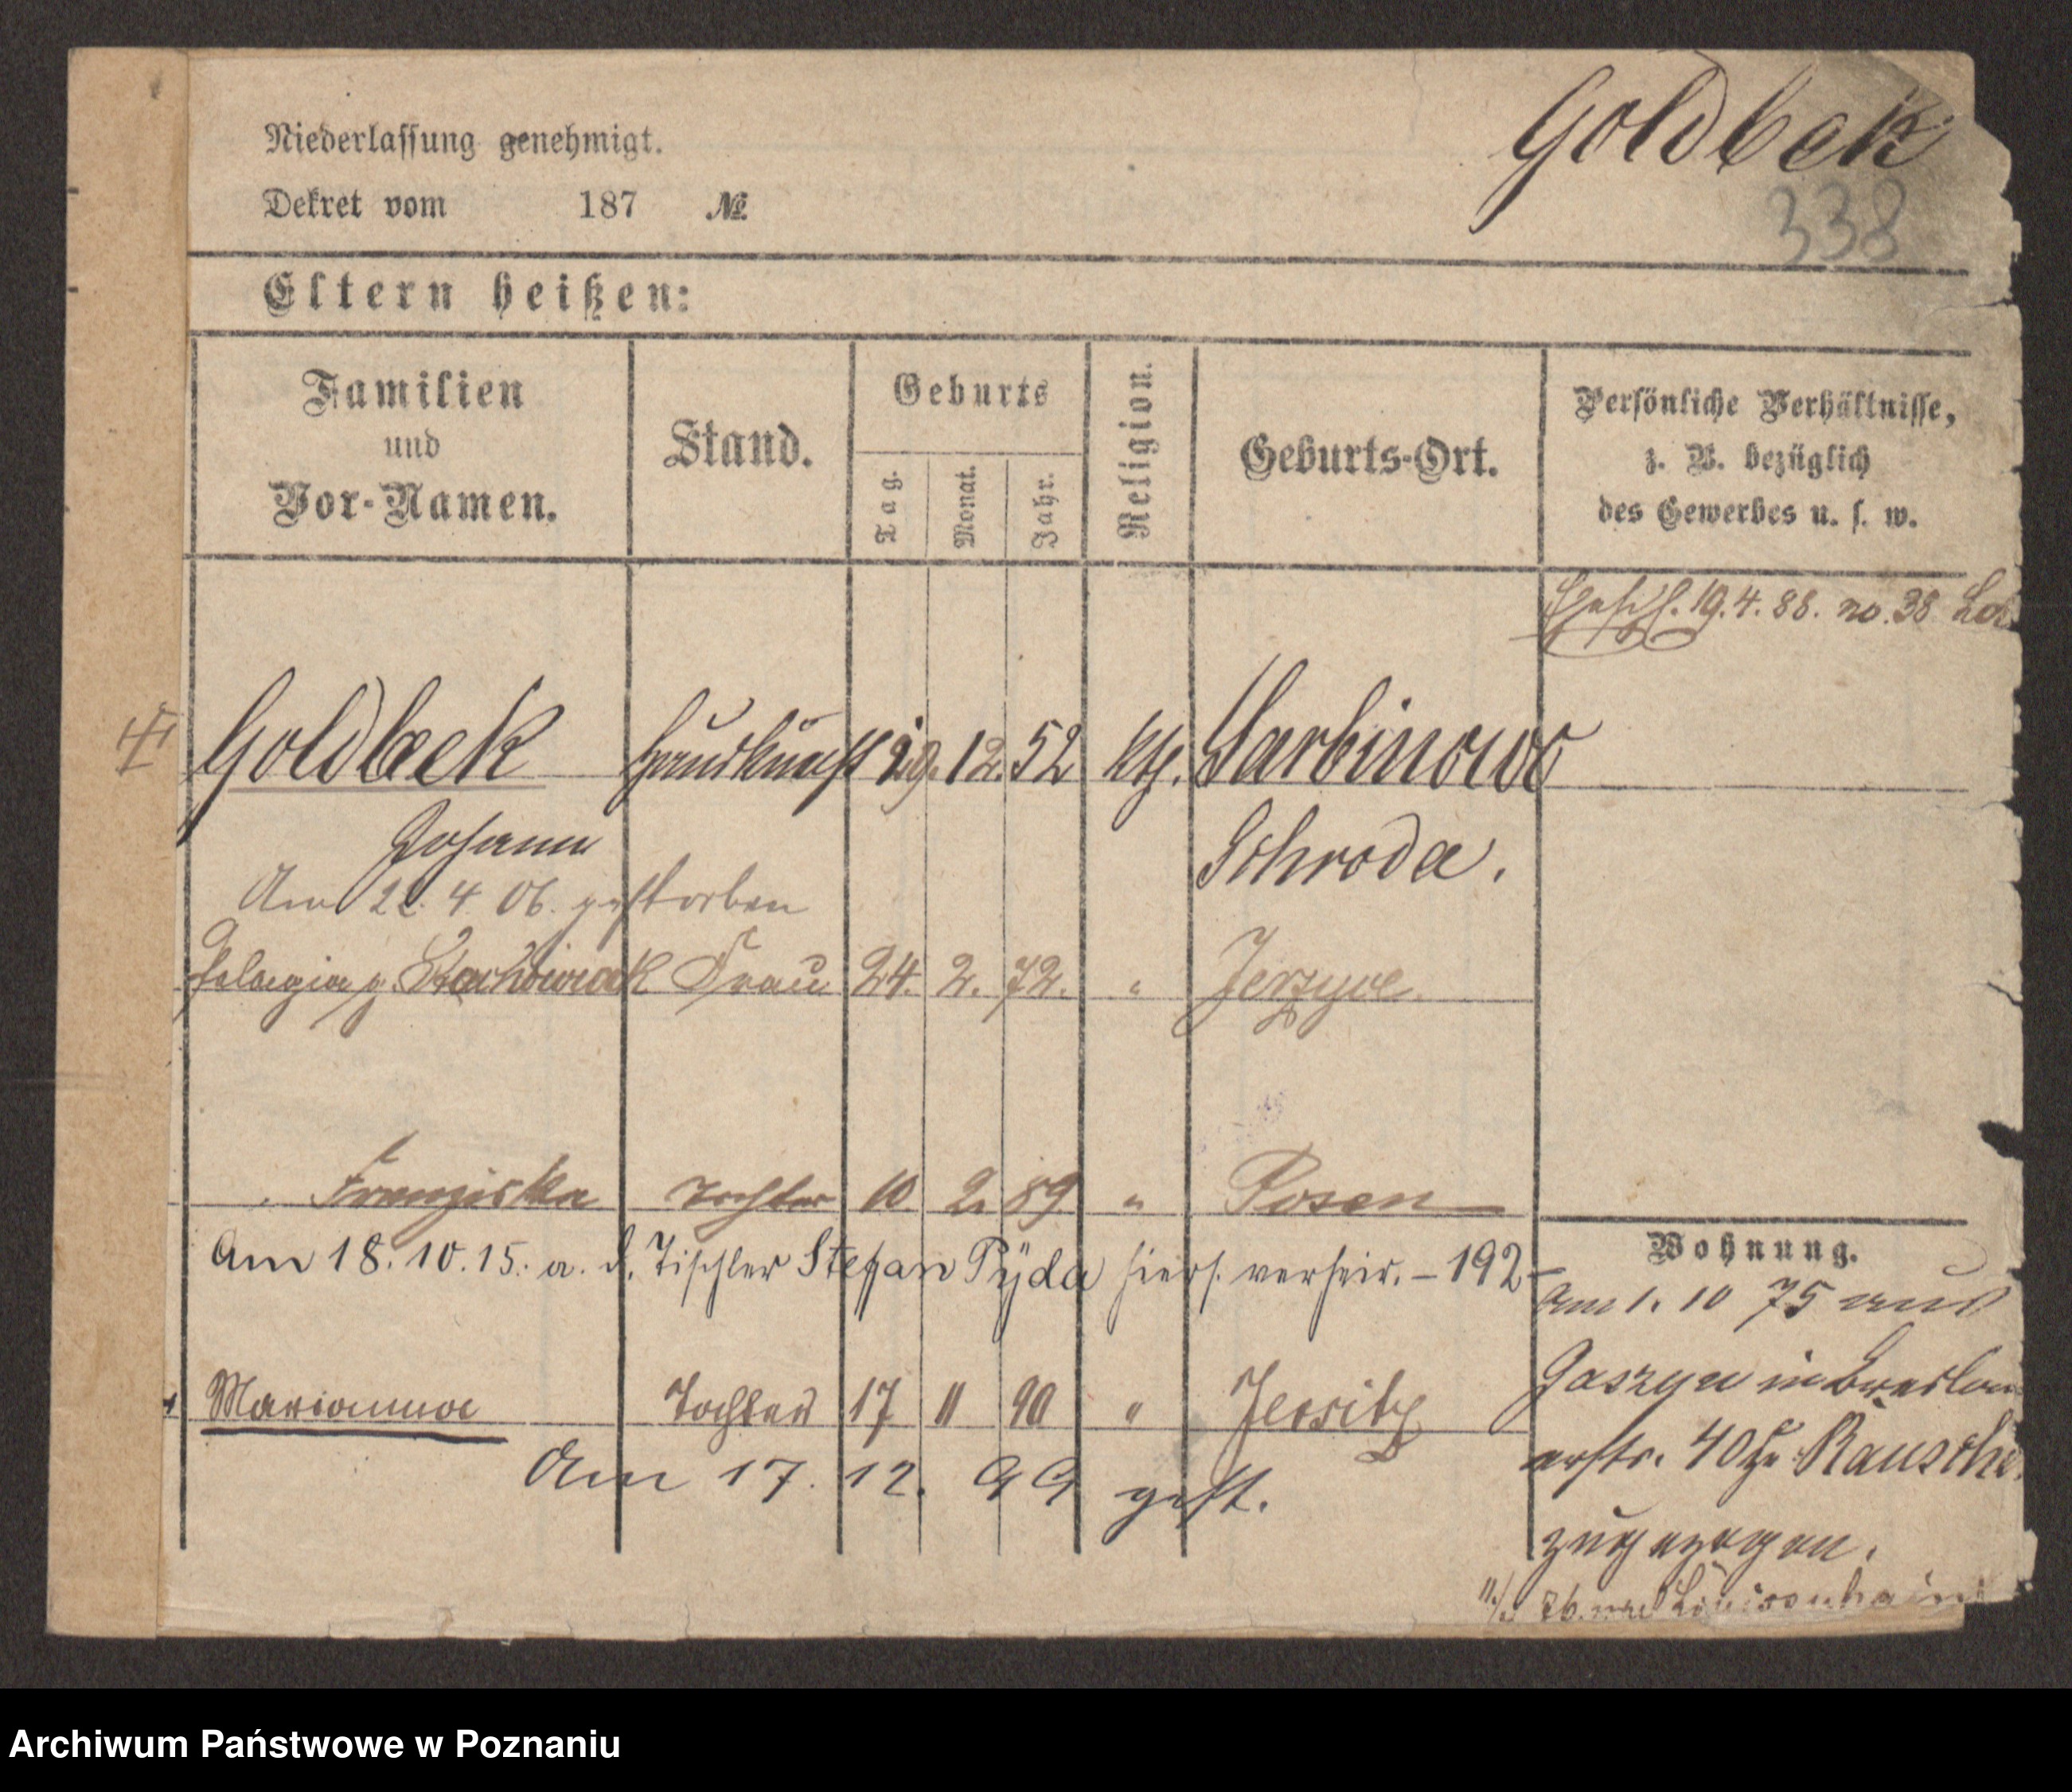 Goldbek
Niederlassung genehmigt.
Dekret vom 187 №
338
Eltern heißen:
Familien und Vor-Namen.
Stand.
Geburts
Tag.
Monat.
Jahr.
Religion.
Geburts-Ort.
Persönliche Verhältnisse,
z. B. bezüglich
des Gewerbes u. s. w.
19.4.88. no. 38
Goldbeck 29. 12. 52 kth. Sarbinowo
Johann Schroda.
Am 22. 4 06. gestorben
Pelagia g. Frau 24. 2. 72. " Jerzyce
Franziska Tochter 10. 2. 89 " Posen
Am 18. 10. 15. a. d. Tischler Stefan Pÿda hiers. verheir. – 192 –
Marianna Tochter 17 11 90 " Jersitz
Am 17. 12. 99 gest.
Wohnung.
Am 1. 10 75 aus
in Breslau
40 Rausche
zugezogen.